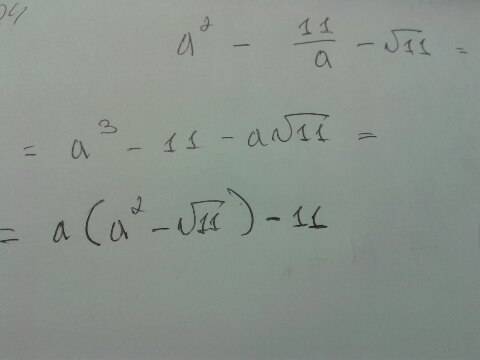 04
a² - 11/a - √11 =
= a³ - 11 - a√11 =
= a(a² - √11) - 11